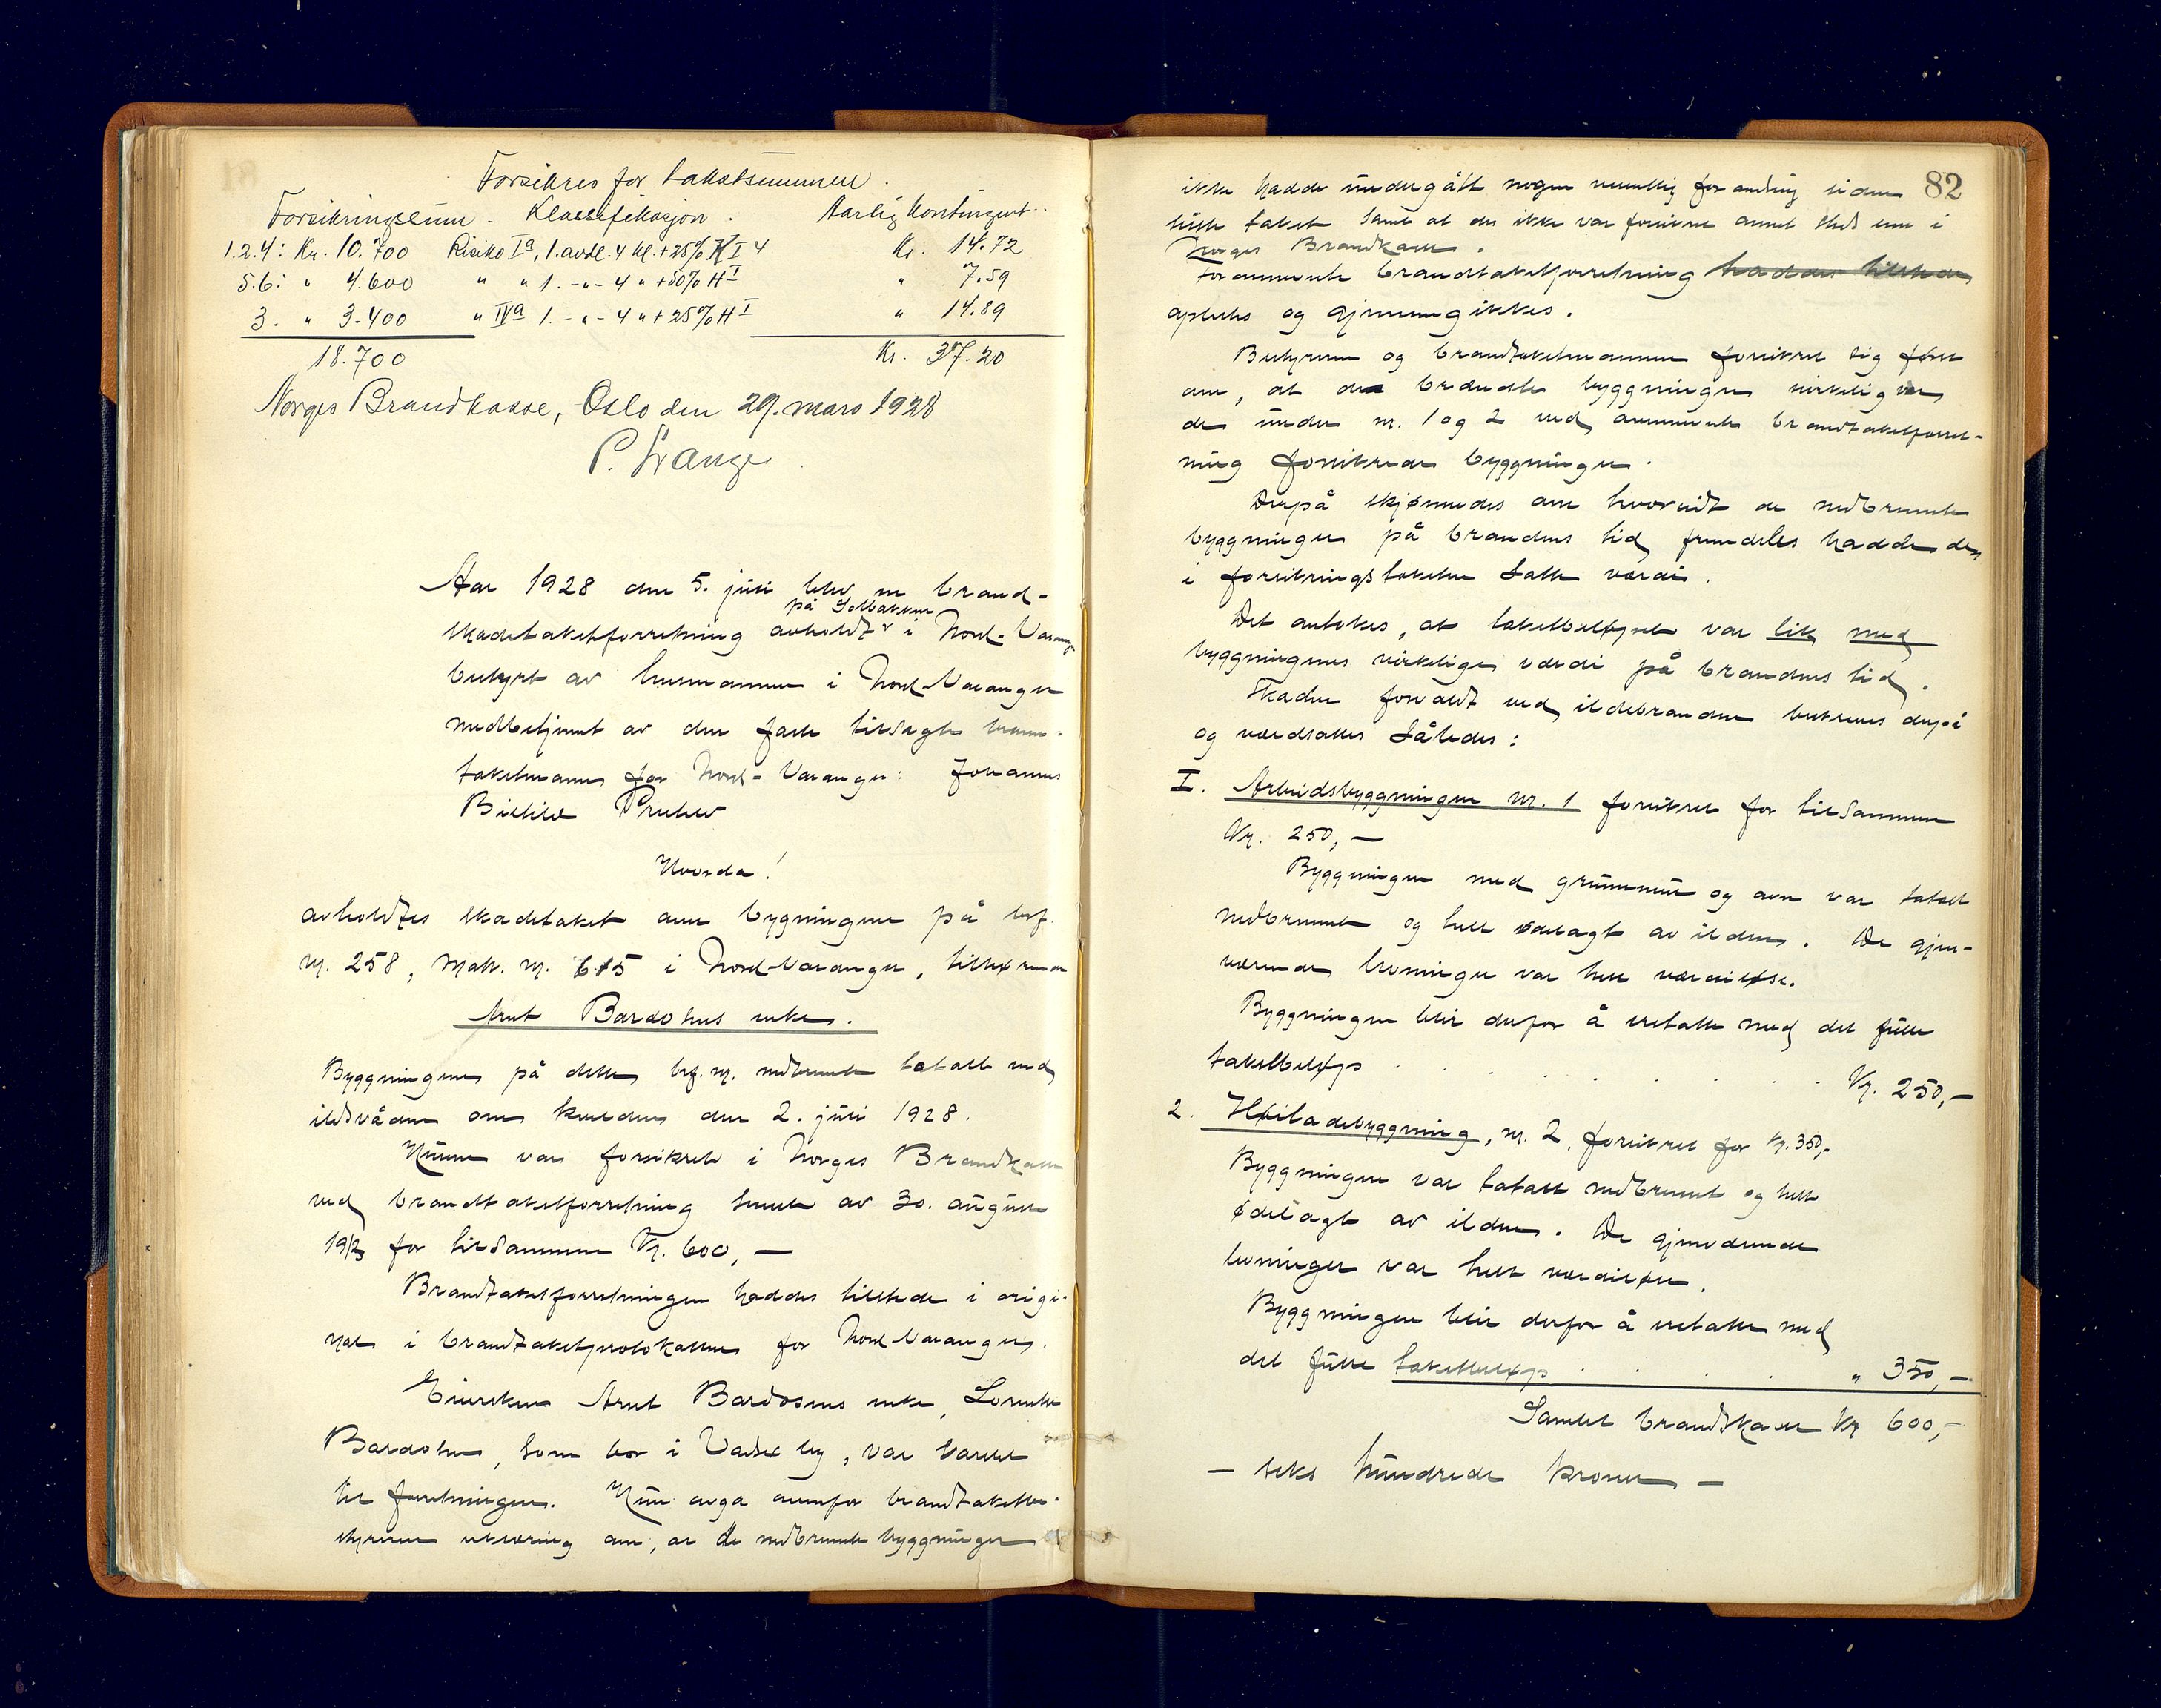 Forsikres for takstsummen.
Forsikringssum - Klassifikasjon. Aarlig kontingent.
1.2.4: Kr. 10.700 Risiko Iª, 1. avdl. 4 kl. + 25% H I 4 Kr. 14.72
5.6: " 4.600 " " 1. -"- 4 " + 50% H I " 7.59
3. " 3.400 " IVª 1. -"- 4 " + 25% H I " 14.89
18.700 Kr. 37.20
Norges Brandkasse, Oslo den 29. mars 1928
P. Lange
Aar 1928 den 5. juli blev en brand-
på Solbakken
skadetakstforretning avholdt i Nord-Varanger
bestyrt av lensmannen i Nord-Varanger
medbetjent av den faste tilsagte brann-
takstmann for Nord-Varanger: Johannes
Prebes
Hvorda!
avholdtes skadetakst over bygningene på brf.
nr. 258, Matr. nr. 615 i Nord-Varanger, tilhørende
Arnt Bardosens enke.
Byggningene på dette brf. nr. nedbrente totalt ved
ildsvåden om kvelden den 2. juli 1928.
Husene var forsikret i Norges Brandkasse
ved brandtakstforretning sluttet av 30. august
1913 for tilsammen Kr. 600,—
Brandtakstforretningen haddes tilstede i origi-
nal i brandtakstprotokollen for Nord-Varanger.
Eiersken Arnt Bardosens enke, Lorentse
Bardosen, som bor i Vadsø by, var varslet
til forretningen. Hun avga ovenfor brandtakstbe-
styreren erklæring om, at de nedbrente byggninger
82
ikke hadde undergått nogen vesentlig forandring siden
siste takst samt at de ikke var forsikret annet sted enn i
Norges Brandkasse.
Forannevnte brandtakstforretning haddes tilstede
oplestes og gjennemgikkes.
Bestyreren og brandtakstmannen forsikret sig først
om, at de brændte byggninger virkelig var
de under nr. 1 og 2 ved ovennevnte brandtakstforret-
ning forsikrede byggninger.
Derpå skjønnedes om hvorvidt de nedbrente
byggninger på brandens tid fremdeles hadde den
i forsikringstaksten satte værdi.
Det antokes, at takstbeløpet var lik med
byggningenes virkelige værdi på brandens tid.
Skaden forvoldt ved ildebranden beskreves derpå
og værdsattes således:
I. Arbeidsbyggningen nr. 1 forsikret for tilsammen
Kr. 250,—
Byggningen med grunnmur og ovn var totalt
nedbrennt og helt ødelagt av ilden. De gjen-
værende levninger var helt værdiløse.
Byggningen blir derfor å erstatte med det fulle
takstbeløp . . . . . . Kr. 250,—
2. Høiladebyggning, nr. 2, forsikret for Kr. 350,-
Byggningen var totalt nedbrennt og helt
ødelagt av ilden. De gjenværende
levninger var helt værdiløse.
Byggningen blir derfor å erstatte med
det fulle takstbeløp . . . . " 350,—
Samlet brandskade Kr 600,—
— seks hundrede kroner —